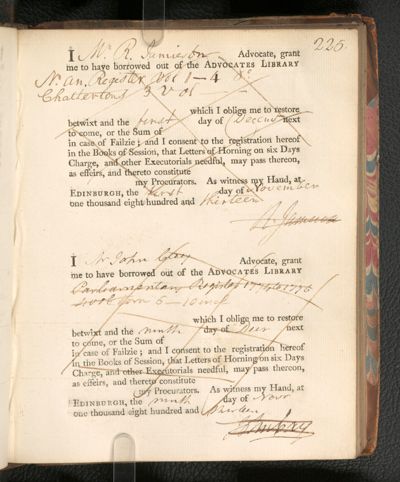 225.
I Mr. R. Jamieson Advocate, grant
me to have borrowed out of the ADVOCATES LIBRARY
N. An. Register Vol 1-4 8o
Chattertons 3 V. 8o
which I oblige me to restore
betwixt and the first day of Decemr next
to come, or the Sum of
in case of Failzie; and I consent to the registration hereof
in the Books of Session, that Letters of Horning on six Days
Charge, and other Executorials needful, may pass thereon,
as effeirs, and thereto constitute
my Procurators. As witness my Hand, at
EDINBURGH, the first day of November
one thousand eight hundred and thirteen
R. Jamieson
I Mr John Advocate, grant
me to have borrowed out of the ADVOCATES LIBRARY
Parliamentary Register 1774 to 1776
4 vols from 6-10
which I oblige me to restore
betwixt and the ninth day of Decr next
to come, or the Sum of
in case of Failzie; and I consent to the registration hereof
in the Books of Session, that Letters of Horning on six Days
Charge, and other Executorials needful, may pass thereon,
as effeirs, and thereto constitute
my Procurators. As witness my Hand, at
EDINBURGH, the ninth day of Novr
one thousand eight hundred and thirteen